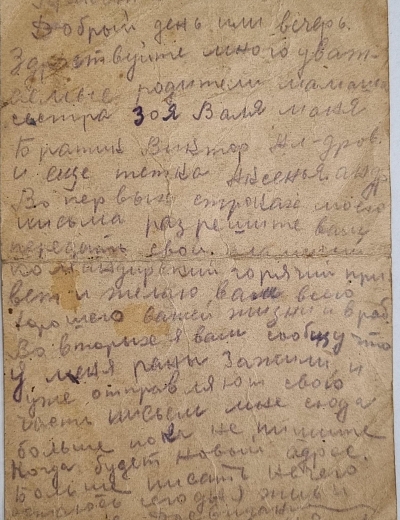 Добрый день или вечер.
Здраствуйте много уваж-
аемые родители мамаша
сестра Зоя Валя маня
Братик Виктор Ал-дров.
и еще тетка Аксенья
Во первых строках моего
письма разрешите вам
передать свой
командирский горячий при
вет и желаю вам всего
хорошего вашей жизни и в раб
Во вторых я вам сообщу что
у меня раны зажили и
уже отправляют свою
часть писем мне сюда
больше пока не пишите
Когда будет новый адрес.
Больше писать нечего
остаюсь жив и